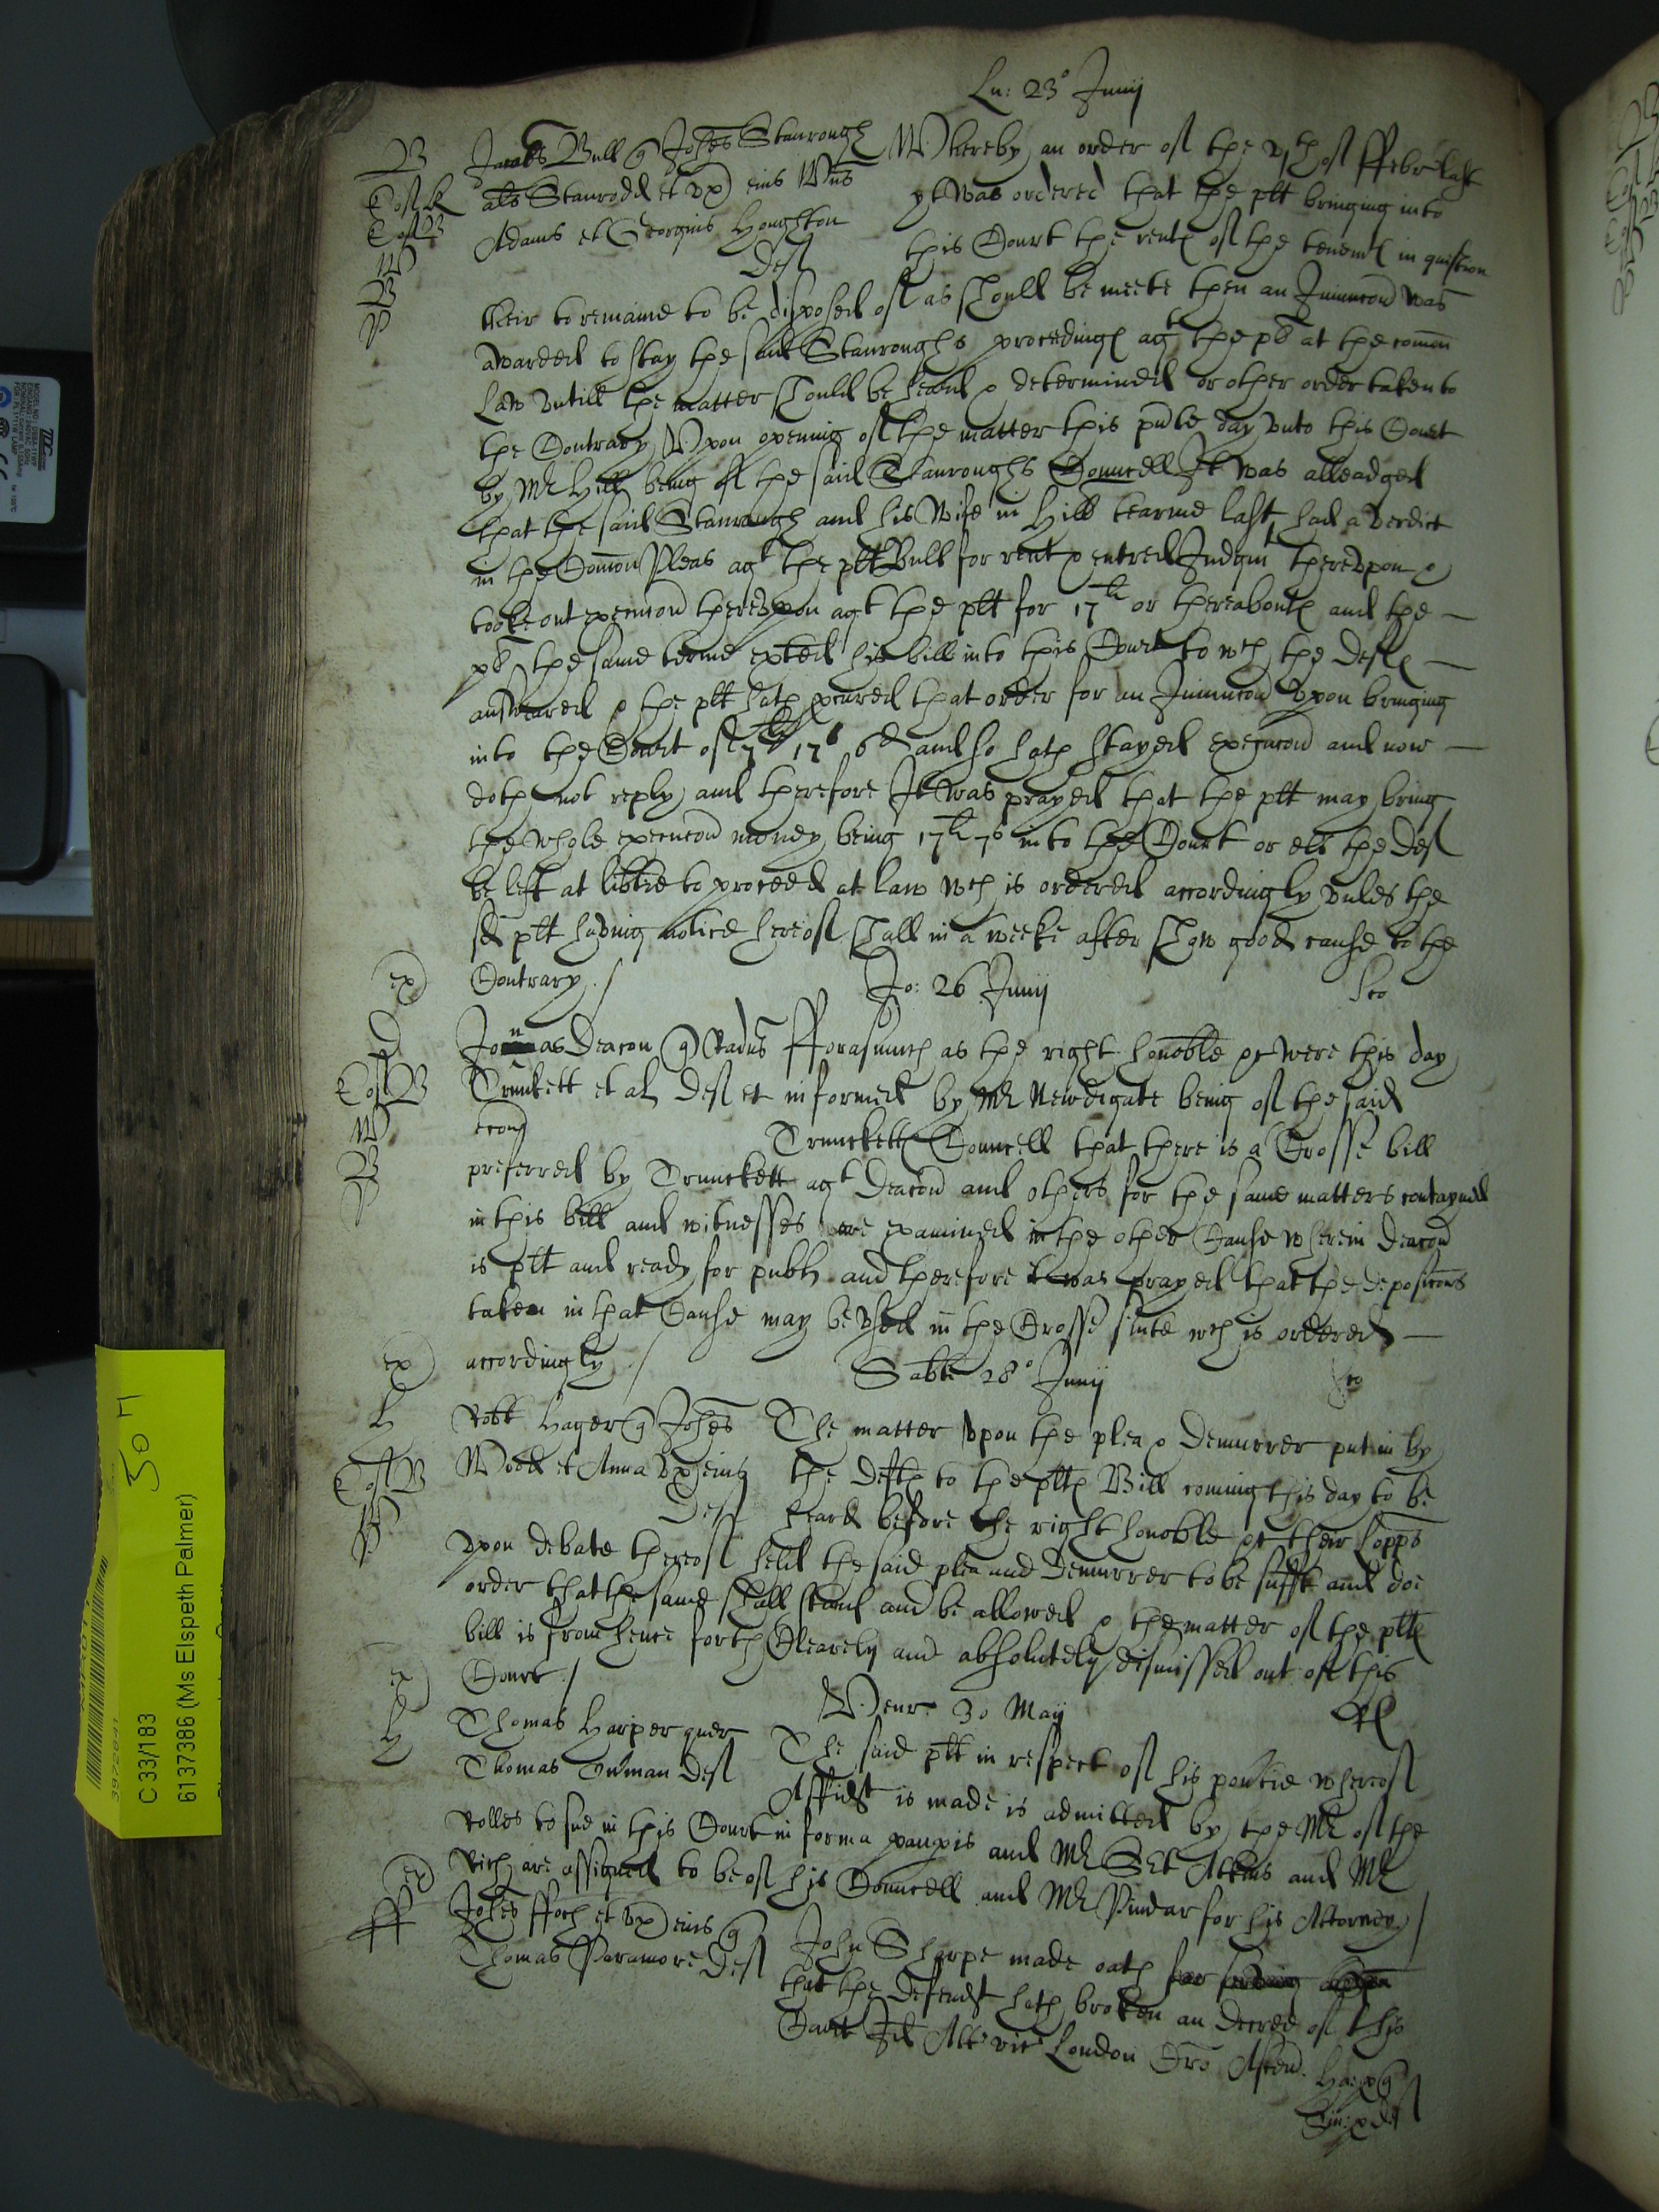 Ln: 23° Junij
B
Cost R
Cost B
W
B
P
Jacobs Bull q Johes Stanrough
als Stanrodd et ux eius Wms
Adams et Georgius Houghton
Def
Whereby an order of the vth of ffebr last
yt was ordered that the plt bringing into
this Court the rente of the tenemte in question
their to remaine to be disposed of as should be meete then an Iniunccon was
awarded to stay the said Stanroughs proceedinge agt the plt at the comon
Law vntill the matter should be heard & determined or other order taken to
the Contrary, Vpon opening of the matter this pnte day vnto this Court
by Mr Hill being of the said Stanroughs Councell It was alleadged
that the said Stanrough and his Wife in Hill tearme last had a verdict
in the Comon Pleas agt the plt Bull for rent & entred Judgmt therevpon &
tooke out execucon therevpon agt the plt for 17li or thereaboute and the —
plt the same terme exhted his bill into this Court to wch the Defte —
answeared & the plt hath pcured that order for an Iniunccon vpon bringing
into the Court of 7li 17s 6d and so hath stayed execucon and now —
doth not reply, and therefore It was prayed that the plt may bring
the whole execucon money being 17li 7s into the Court or els the Def
be left at libtie to proceed at law wch is ordered accordingly vnles the
sd plt having notice hereof shall in a weeke after shew good cause to the
Contrary ./
ex
Jo: 26 Junij
D
Cost B
W
B
P
Jonas Deacon q Radus
Trunckett et al Def et
econ
fforasmuch as the right honoble &c were this day
informed by Mr Newdegate being of the said
Truncketts Councell that there is a Crosse bill
preferred by Trunckett agt Deacon and others for the same matters contayned
in this bill and witnesses are examined in the other Cause wherein Deacon
is plt and ready for publ and therefore it was prayed that the deposicons
taken in that Cause may be vsed in the Crosse suite wch is ordered —
accordingly ./
ex
Sabti 28° Junij
H
Cost B
Robt Hager q Johes
Wood et Anna ux eius
Def
The matter vpon the plea & Demurrer put in by
the Defte to the plte Bill coming this day to be
heard before the right honoble &c their Lopps
vpon debate thereof held the said plea and Demurrer to be suffit and doe
order that the same shall stand and be allowed & the matter of the plte
bill is from hence forth Clearely and absolutely dismissed out of this
Court ./
ex
Venr: 30 May
H
Thomas Harper quer
Thomas Inman Def
The said plt in respect of his poutie whereof
Affidt is made is admitted by the Mr of the
Rolles to sue in this Court in forma paupis and Mr Sgt Atkins and Mr
Rich are assigned to be of his Councell and Mr Pindar for his Attorney /
ff
Johes ffoch et ux eius q
Thomas Paramore Def
John Sharpe made oath
that the Defendt hath broken an decree of this
Court Id Att vic London
Ha: p q
p def
C 33/183
61 37386 (Ms Elspeth Palmer)